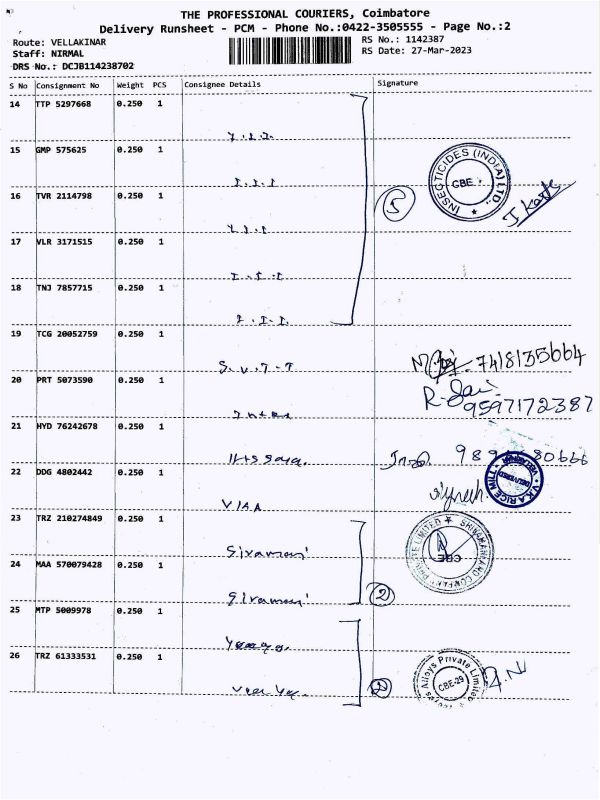 THE PROFESSIONAL COURIERS, Coimbatore
Delivery Runsheet - PCM - Phone No.:0422-3505555 - Page No.:2
Route: VELLAKINAR
RS No.: 1142387
Staff: NIRMAL
RS Date: 27-Mar-2023
DRS No.: DCJB114238702
S No Consignment No Weight PCS Consignee Details Signature
14 TTP 5297668 0.250 1
I.I.I
15 GMP 575625 0.250 1
I.I.I
INSECTICIDES (INDIA) LTD.
CBE
16 TVR 2114798 0.250 1
5
I.I.I
17 VLR 3171515 0.250 1
I.I.I
18 TNJ 7857715 0.250 1
I.I.I.
19 TCG 20052759 0.250 1
7418135664
S.V.T.T
20 PRT 5073590 0.250 1
R. Sai
9597172387
21 HYD 76242678 0.250 1
22 DDG 4802442 0.250 1
V.K.A RICE MILL
DELIVERED
23 TRZ 210274849 0.250 1
Sivamani
PRIVATE LIMITED
CBE
24 MAA 570079428 0.250 1
Sivamani
2
25 MTP 5009978 0.250 1
26 TRZ 61333531 0.250 1
Alloys Private Limited
CBE-29
2